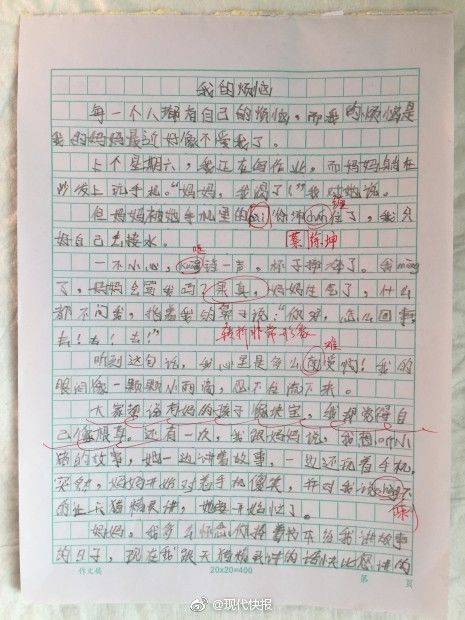 我的烦恼
每一个人都有自己的烦恼，而我的烦恼是
我的妈妈最近好像不爱我了。
上个星期六，我正在写作业，而妈妈躺在
沙发上玩手机。“妈妈，我渴了！”我对她说。
但妈妈被她手机里的 住了，我只
缠
好自己去接水。
蔡徐坤
一不小心， 一声，杯子摔碎了。我
了，妈妈会骂我吗？果真，妈妈生气了，什么
都不问我，指着我的鼻子说：“你呀，怎么回事，
去！去！去！”
转折非常形象
难
听到这句话，我心里是多么 受啊！我的
眼泪像一颗颗小雨滴，忍不住流下来。
大家都说有妈的孩子像块宝，我却觉得自
己像根草。还有一次，我跟妈妈说，我想听小
猪的故事，她一边讲着故事，一边还看着手机，
突然，妈妈开始对着手机傻笑，并对我说
让天猫精灵讲，她
妈妈，我多么怀念你捧着书本给我讲故事
的日子，现在我跟天猫精灵讲的话快比您讲的
作文稿
20x20=400
第 页
@现代快报